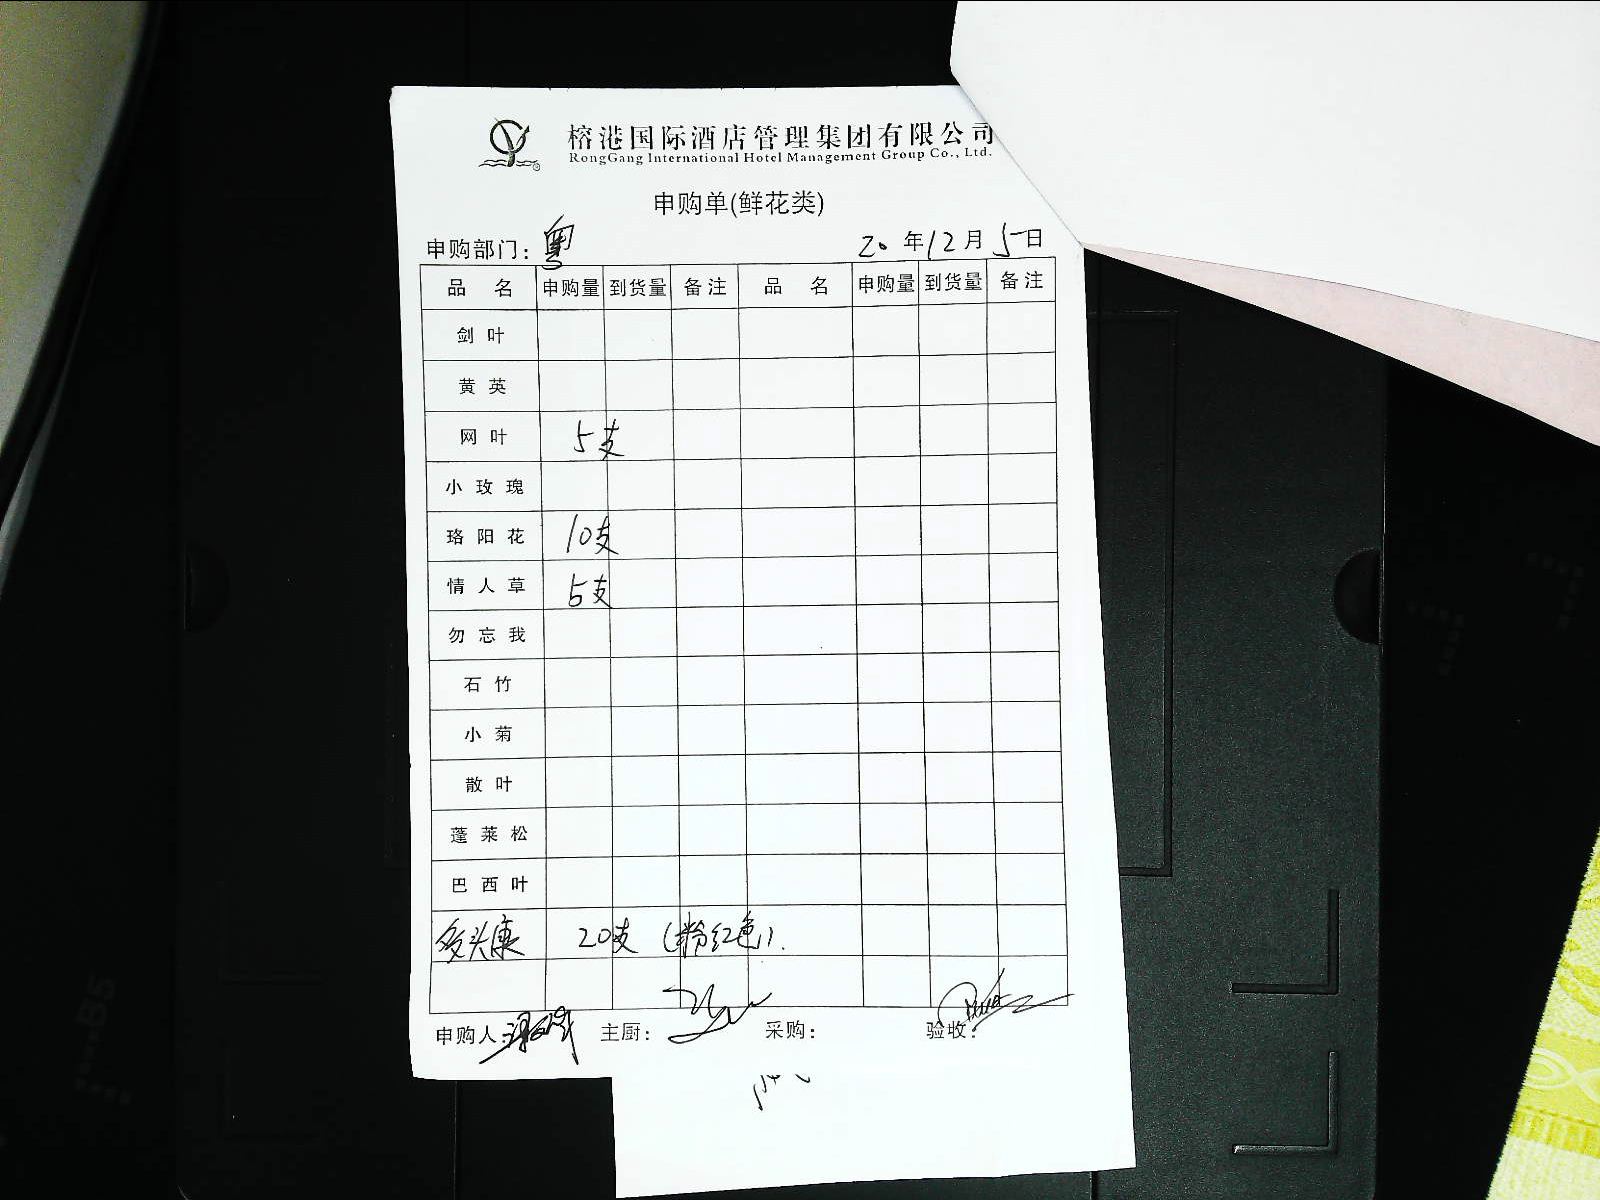 榕港国际酒店管理集团有限公司
RongGang International Hotel Management Group Co., Ltd.
申购单(鲜花类)
申购部门：粤 20年12月5日
品名 申购量 到货量 备注 品名 申购量 到货量 备注
剑叶
黄英
网叶 5支
小玫瑰
珞阳花 10支
情人草 5支
勿忘我
石竹
小菊
散叶
蓬莱松
巴西叶
多头康 20支 (粉红色).
申购人： 主厨： 采购： 验收：